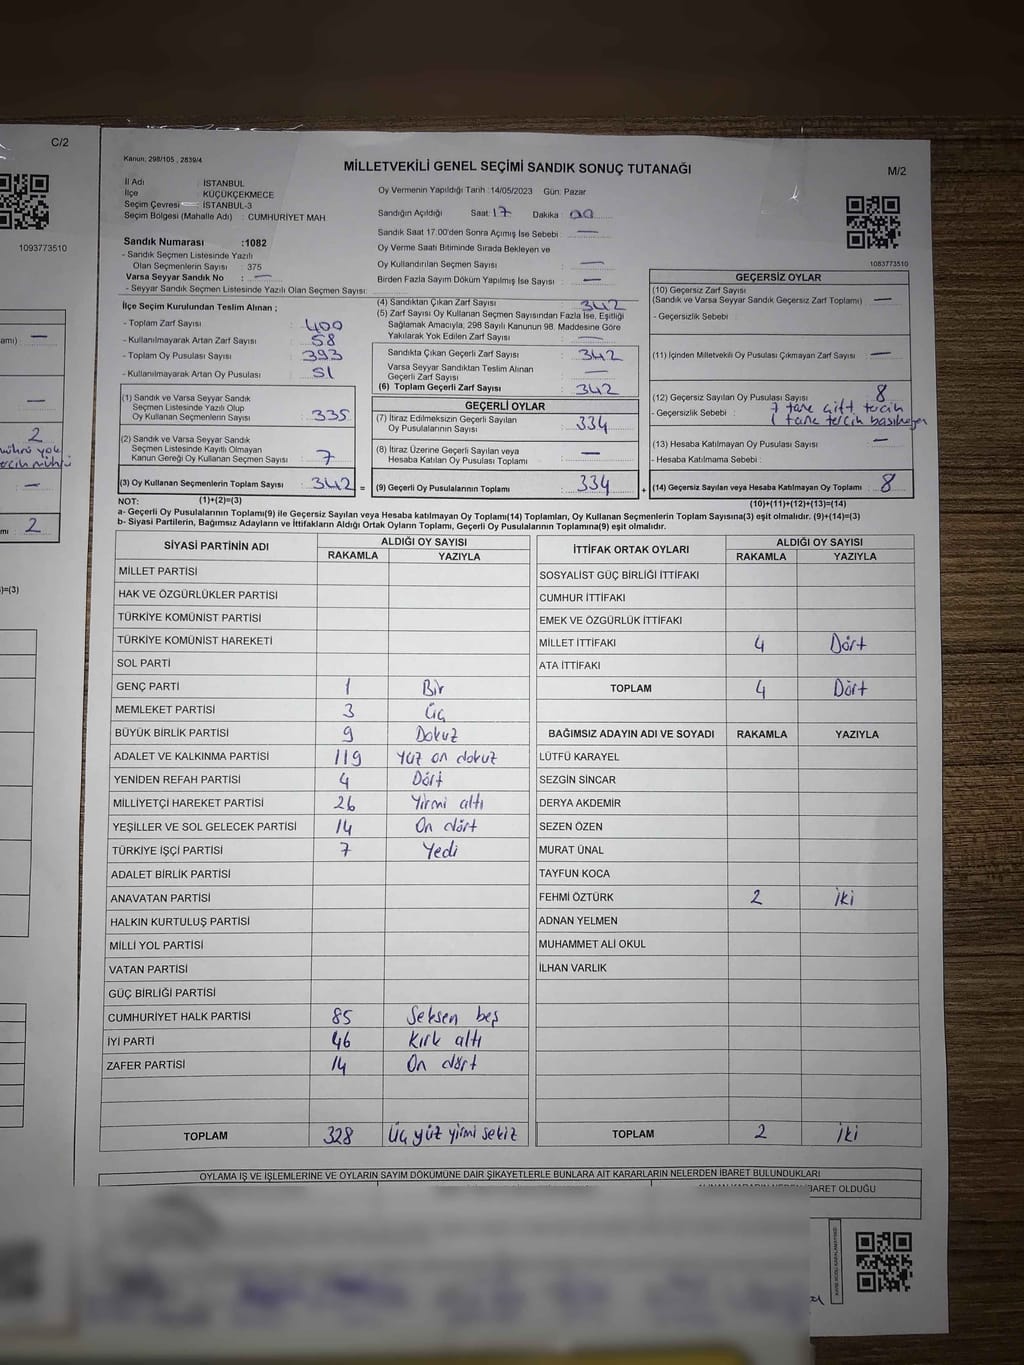 C/2
1093773510
amı) —
—
2
mührü yok
tercih mührü
—
mı 2
)=(3)
Kanun: 298/105 , 2839/4
MİLLETVEKİLİ GENEL SEÇİMİ SANDIK SONUÇ TUTANAĞI
M/2
İl Adı : İSTANBUL
İlçe : KÜÇÜKÇEKMECE
Seçim Çevresi : İSTANBUL-3
Seçim Bölgesi (Mahalle Adı) : CUMHURİYET MAH
Sandık Numarası :1082
- Sandık Seçmen Listesinde Yazılı
Olan Seçmenlerin Sayısı : 375
Varsa Seyyar Sandık No : —
- Seyyar Sandık Seçmen Listesinde Yazılı Olan Seçmen Sayısı:
Oy Vermenin Yapıldığı Tarih :14/05/2023 Gün: Pazar
Sandığın Açıldığı Saat: 17 Dakika : 00
Sandık Saat 17.00'den Sonra Açımış İse Sebebi : —
Oy Verme Saati Bitiminde Sırada Bekleyen ve
Oy Kullandırılan Seçmen Sayısı : —
Birden Fazla Sayım Döküm Yapılmış İse Sayısı : —
1083773510
İlçe Seçim Kurulundan Teslim Alınan ;
- Toplam Zarf Sayısı : 400
- Kullanılmayarak Artan Zarf Sayısı : 58
- Toplam Oy Pusulası Sayısı : 393
- Kullanılmayarak Artan Oy Pusulası : 51
(1) Sandık ve Varsa Seyyar Sandık
Seçmen Listesinde Yazılı Olup
Oy Kullanan Seçmenlerin Sayısı : 335
(2) Sandık ve Varsa Seyyar Sandık
Seçmen Listesinde Kayıtlı Olmayan
Kanun Gereği Oy Kullanan Seçmen Sayısı : 7
(3) Oy Kullanan Seçmenlerin Toplam Sayısı : 342 =
(4) Sandıktan Çıkan Zarf Sayısı : 342
(5) Zarf Sayısı Oy Kullanan Seçmen Sayısından Fazla İse, Eşitliği
Sağlamak Amacıyla; 298 Sayılı Kanunun 98. Maddesine Göre
Yakılarak Yok Edilen Zarf Sayısı : —
Sandıkta Çıkan Geçerli Zarf Sayısı : 342
Varsa Seyyar Sandıktan Teslim Alınan
Geçerli Zarf Sayısı : —
(6) Toplam Geçerli Zarf Sayısı : 342
GEÇERLİ OYLAR
(7) İtiraz Edilmeksizin Geçerli Sayılan
Oy Pusulalarının Sayısı : 334
(8) İtiraz Üzerine Geçerli Sayılan veya
Hesaba Katılan Oy Pusulası Toplamı : —
(9) Geçerli Oy Pusulalarının Toplamı : 334 +
GEÇERSİZ OYLAR
(10) Geçersiz Zarf Sayısı
(Sandık ve Varsa Seyyar Sandık Geçersiz Zarf Toplamı) : —
- Geçersizlik Sebebi :
(11) İçinden Milletvekili Oy Pusulası Çıkmayan Zarf Sayısı : —
(12) Geçersiz Sayılan Oy Pusulası Sayısı : 8
- Geçersizlik Sebebi : 7 tane çift tercih
1 tane tercih
(13) Hesaba Katılmayan Oy Pusulası Sayısı : —
- Hesaba Katılmama Sebebi :
(14) Geçersiz Sayılan veya Hesaba Katılmayan Oy Toplamı : 8
NOT: (1)+(2)=(3) (10)+(11)+(12)+(13)=(14)
a- Geçerli Oy Pusulalarının Toplamı(9) ile Geçersiz Sayılan veya Hesaba katılmayan Oy Toplamı(14) Toplamları, Oy Kullanan Seçmenlerin Toplam Sayısına(3) eşit olmalıdır. (9)+(14)=(3)
b- Siyasi Partilerin, Bağımsız Adayların ve İttifakların Aldığı Ortak Oyların Toplamı, Geçerli Oy Pusulalarının Toplamına(9) eşit olmalıdır.
SİYASİ PARTİNİN ADI ALDIĞI OY SAYISI
RAKAMLA YAZIYLA
MİLLET PARTİSİ
HAK VE ÖZGÜRLÜKLER PARTİSİ
TÜRKİYE KOMÜNİST PARTİSİ
TÜRKİYE KOMÜNİST HAREKETİ
SOL PARTİ
GENÇ PARTİ 1 Bir
MEMLEKET PARTİSİ 3 Üç
BÜYÜK BİRLİK PARTİSİ 9 Dokuz
ADALET VE KALKINMA PARTİSİ 119 Yüz on dokuz
YENİDEN REFAH PARTİSİ 4 Dört
MİLLİYETÇİ HAREKET PARTİSİ 26 Yirmi altı
YEŞİLLER VE SOL GELECEK PARTİSİ 14 On dört
TÜRKİYE İŞÇİ PARTİSİ 7 Yedi
ADALET BİRLİK PARTİSİ
ANAVATAN PARTİSİ
HALKIN KURTULUŞ PARTİSİ
MİLLİ YOL PARTİSİ
VATAN PARTİSİ
GÜÇ BİRLİĞİ PARTİSİ
CUMHURİYET HALK PARTİSİ 85 Seksen beş
İYİ PARTİ 46 Kırk altı
ZAFER PARTİSİ 14 On dört
TOPLAM 328 Üç yüz yirmi sekiz
İTTİFAK ORTAK OYLARI ALDIĞI OY SAYISI
RAKAMLA YAZIYLA
SOSYALİST GÜÇ BİRLİĞİ İTTİFAKI
CUMHUR İTTİFAKI
EMEK VE ÖZGÜRLÜK İTTİFAKI
MİLLET İTTİFAKI 4 Dört
ATA İTTİFAKI
TOPLAM 4 Dört
BAĞIMSIZ ADAYIN ADI VE SOYADI RAKAMLA YAZIYLA
LÜTFÜ KARAYEL
SEZGİN SİNCAR
DERYA AKDEMİR
SEZEN ÖZEN
MURAT ÜNAL
TAYFUN KOCA
FEHMİ ÖZTÜRK 2 iki
ADNAN YELMEN
MUHAMMET ALİ OKUL
İLHAN VARLIK
TOPLAM 2 iki
OYLAMA İŞ VE İŞLEMLERİNE VE OYLARIN SAYIM DÖKÜMÜNE DAİR ŞİKAYETLERLE BUNLARA AİT KARARLARIN NELERDEN İBARET BULUNDUKLARI
İBARET OLDUĞU